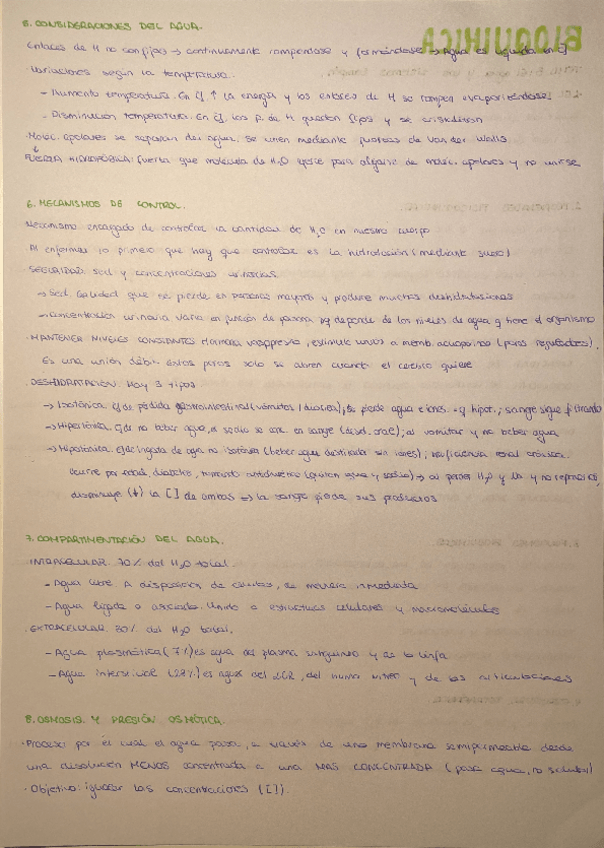 5. CONSIDERACIONES DEL AGUA.
Enlaces de H no son fijos → continuamente rompiendose y formándose → Agua es líquida en CN
Variaciones según la temperatura.
- Aumento temperatura. En CN ↑ la energía y los enlaces de H se rompen evaporizándose
- Disminución temperatura. En CN, los p. de H quedan fijos y se cristalizan
· Moléc. apolares se separan del agua. Se unen mediante fuerzas de Van der Walls
FUERZA HIDROFÓBICA: fuerza que molécula de H2O ejerce para alejarse de moléc. apolares y no unirse
6. MECANISMOS DE CONTROL.
Mecanismo encargado de controlar la cantidad de H2O en nuestro cuerpo
Al enfermar lo primero que hay que controlar es la hidratación (mediante suero)
SEGURIDAD: sed y concentraciones urinarias
→ Sed. Cualidad que se pierde en personas mayores y produce muchas deshidrataciones
→ Concentración urinaria varía en función de persona xq depende de los niveles de agua q tiene el organismo
· MANTENER NIVELES CONSTANTES. Hormona vasopresina, estimula unas a memb. acuaporina (poros reguladores).
Es una unión débil. Estos poros solo se abren cuando el cerebro quiere
· DESHIDRATACIÓN. Hay 3 tipos
→ Isotónica. Ej de pérdida gastrointestinal (vómitos / diarrea), se pierde agua e iones.
→ Hipertónica. Ej de no beber agua, el sodio se conc. en sangre al vomitar y no beber agua
→ Hipotónica. Ej de ingesta de agua no isotónica (beber agua destilada sin iones), insuficiencia renal crónica.
Ocurre por (quitan agua y sodio) → al perder H2O y la y no reponerlos,
disminuye (↓) la [ ] de ambos → la sangre pierde sus productos
7. COMPARTIMENTACIÓN DEL AGUA.
· INTRACELULAR. 70% del H2O total.
- Agua libre. A disposición de células, se moviliza inmediata
- Agua ligada o asociada. Unida a estructuras celulares y macromoléculas
· EXTRACELULAR. 30% del H2O total.
- Agua plasmática (7%) es agua del plasma sanguíneo y de la linfa
- Agua intersticial (23%) es agua del LCR, del humor vítreo y de las articulaciones
8. OSMOSIS Y PRESIÓN OSMÓTICA.
· Proceso por el cual el agua pasa, a través de una membrana semipermeable desde
una disolución MENOS concentrada a una MÁS CONCENTRADA (pasa agua, no solutos)
· Objetivo: igualar las concentraciones ([ ]).